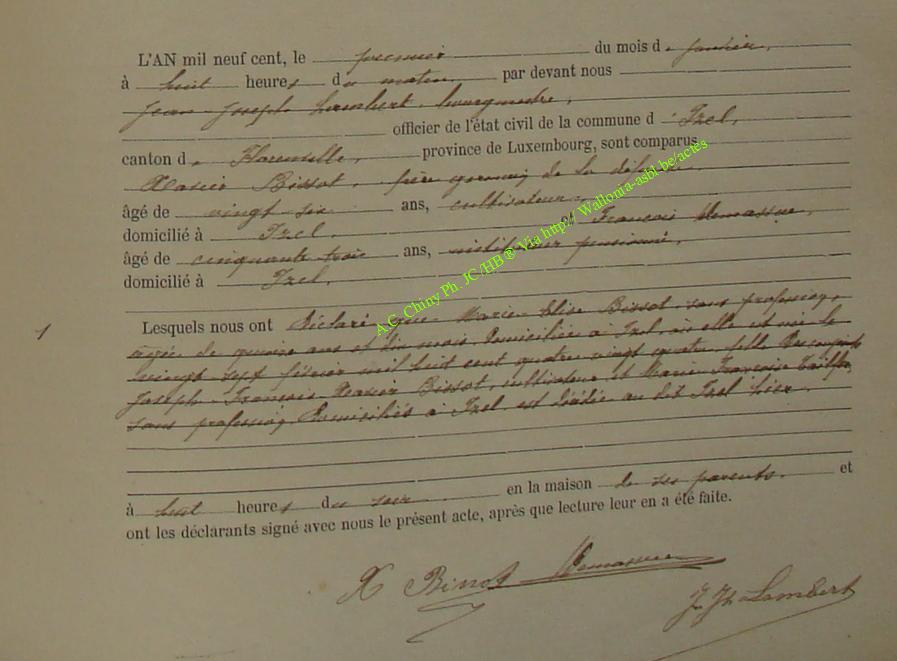 L'AN mil neuf cent, le premier du mois de janvier,
à huit heures du matin, par devant nous
Jean-Joseph Lambert, bourgmestre,
officier de l'état civil de la commune d Izel,
canton de Florenville, province de Luxembourg, sont comparus
Xavier Bissot, frère germain de la défunte
âgé de vingt-six ans, cultivateur,
domicilié à Izel, et François
âgé de cinquante trois ans, instituteur pensionné,
domicilié à Izel,
1
Lesquels nous ont déclaré que Marie-Elise Bissot, sans profession,
âgée de quinze ans et dix mois, domiciliée à Izel, où elle est née le
vingt sept février mil huit cent quatre vingt quatre, fille des conjoints
Joseph-François-Xavier Bissot, cultivateur et Marie-Françoise
sans profession, domiciliés à Izel, est décédée au dit Izel hier
à huit heures du soir en la maison de ses parents, et
ont les déclarants signé avec nous le présent acte, après que lecture leur en a été faite.
X Bissot
J. Jh Lambert
A.C. Chiny Ph. JC/HB ® Via http:// Wallonia-asbl.be/actes